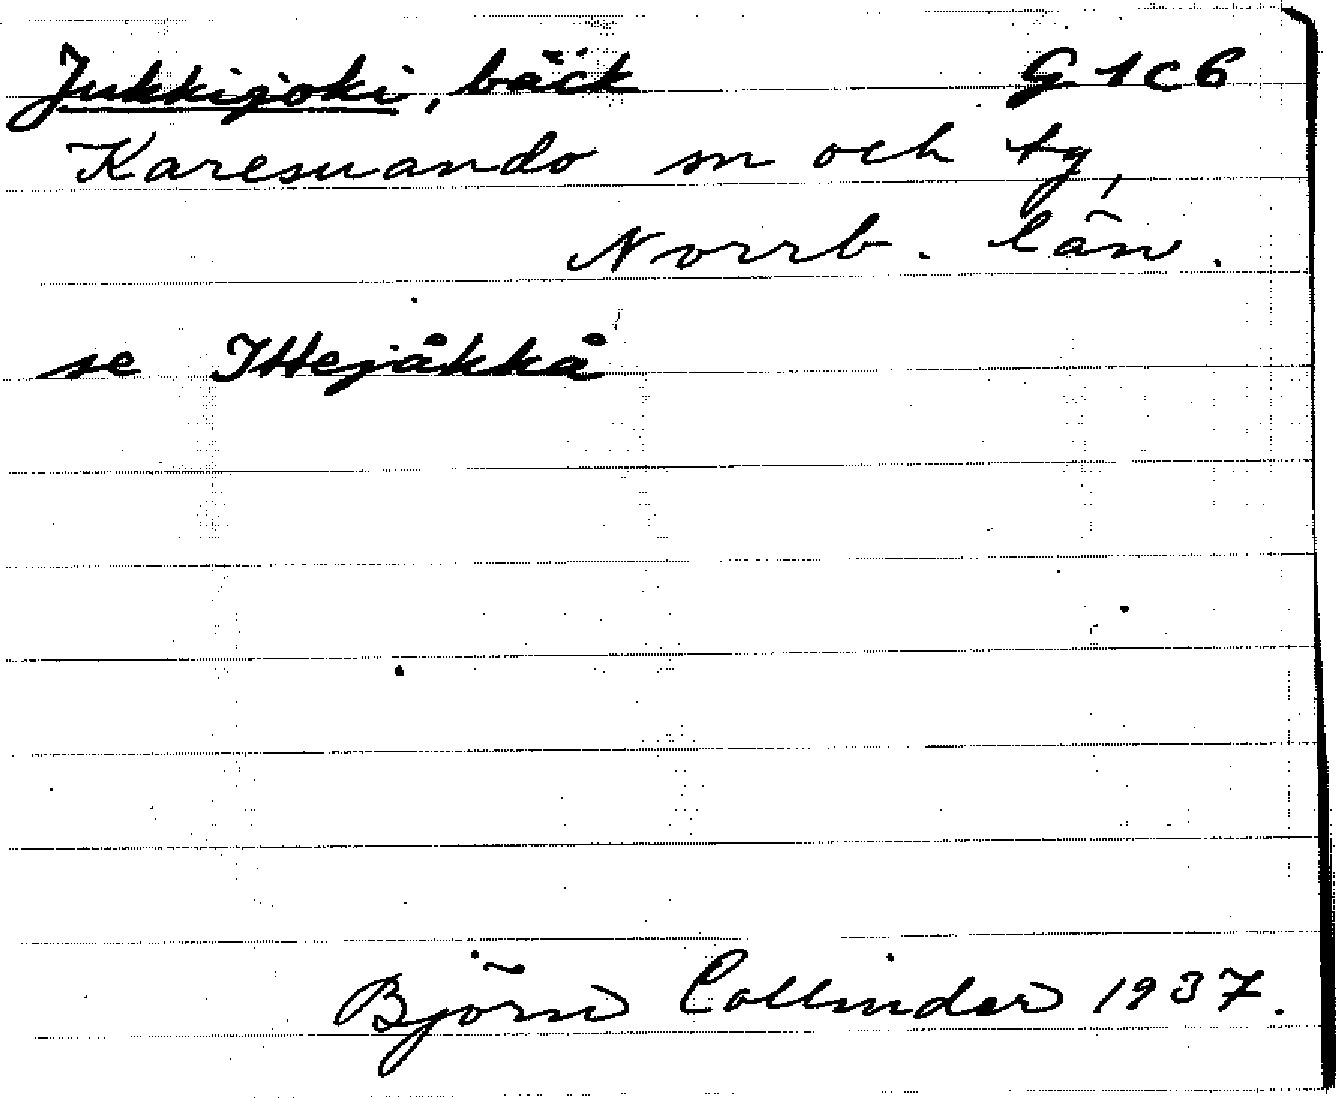 Jukkijoki, bäck G 1 c 6
Karesuando sn och tg,
Norrb. län.
se Ittejåkkå
Björn Collinder 1937.